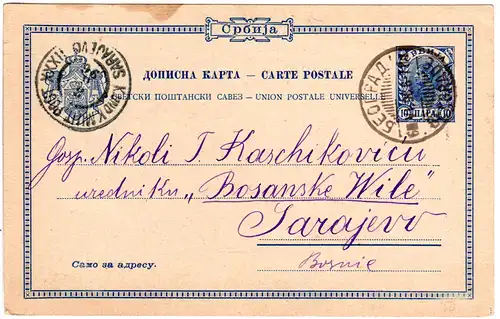 Србија
ДОПИСНА КАРТА – CARTE POSTALE
СВЕТСКИ ПОШТАНСКИ САВЕЗ – UNION POSTALE UNIVERSELLE
10 ПАРА 10
БЕОГРАД
SARAJEVO
Gosp. Nikoli T Kaschikoviću
uredniku „Bosanske Wile"
Sarajevo
Bosnie
Само за адресу.